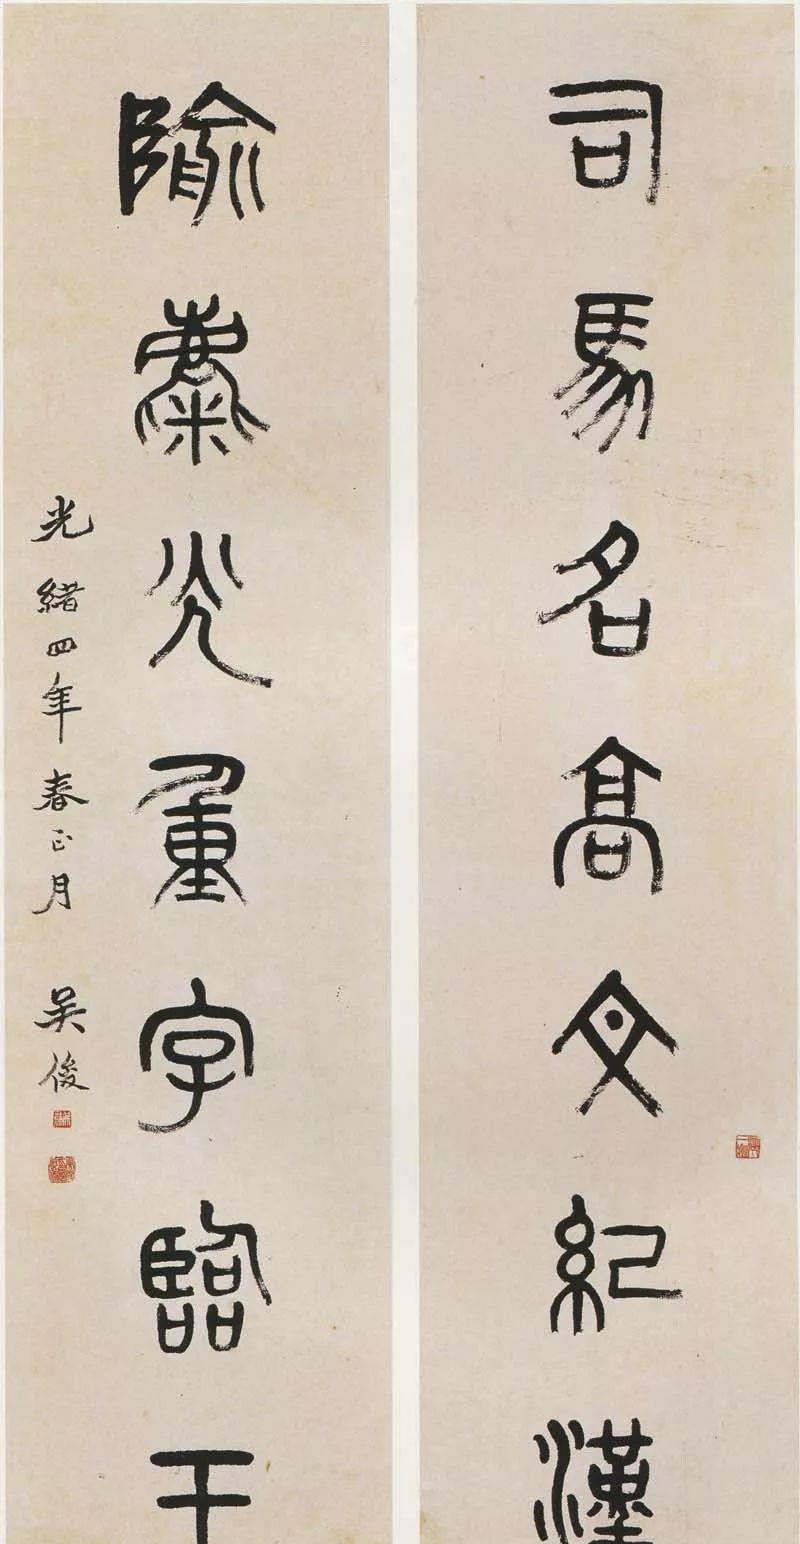 司馬名高文紀漢
隃麋光重字臨
光緒四年春正月 吳俊